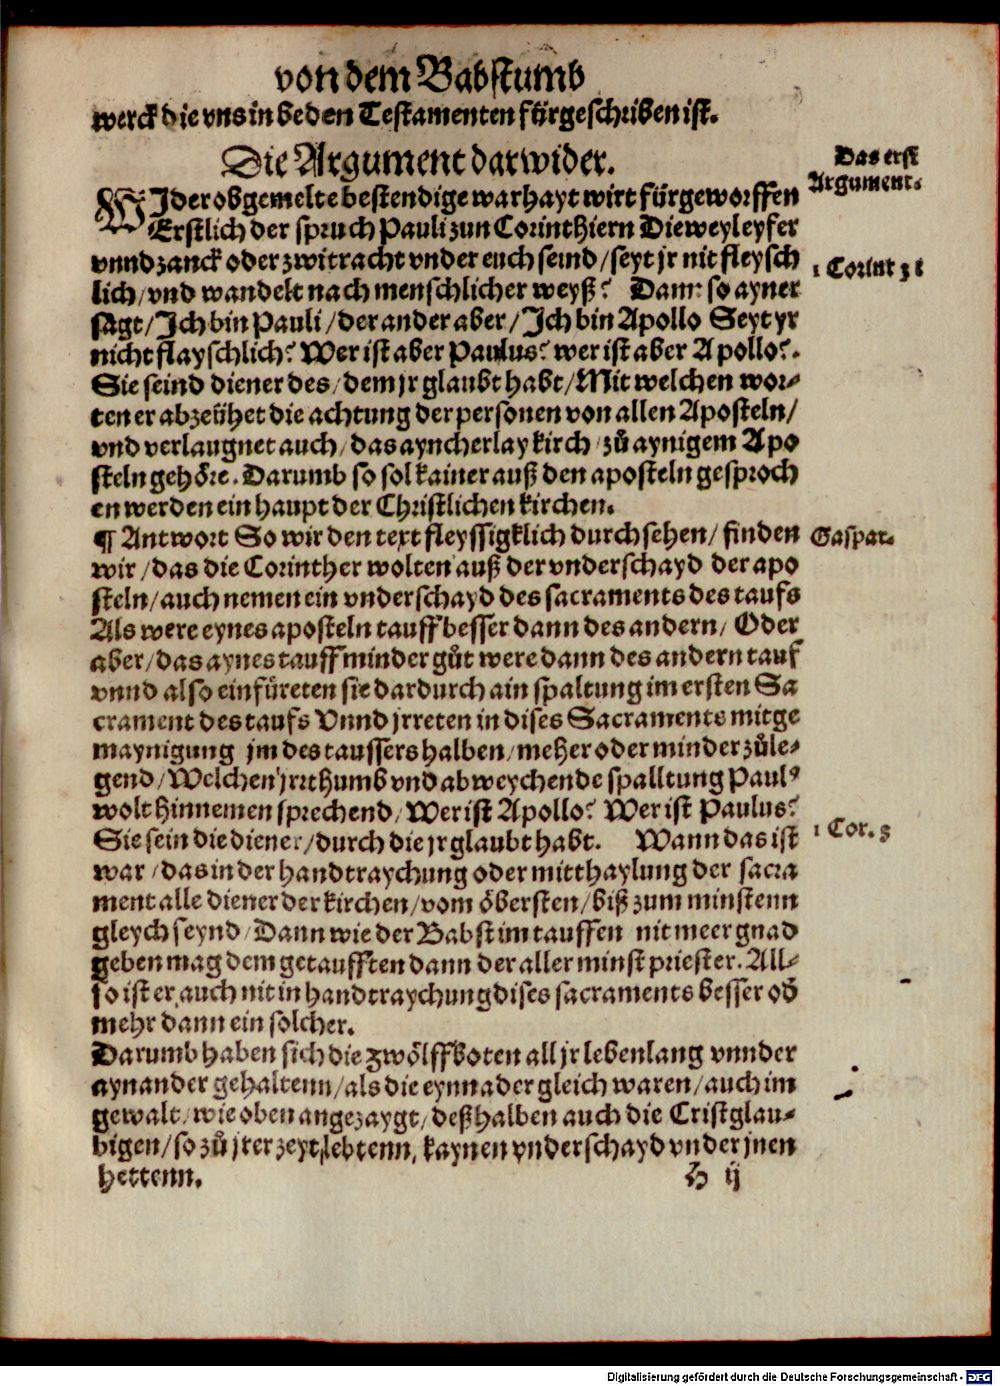 von dem Babstumb
werck die vns in beden Testamenten fürgeschriben ist.
Die Argument darwider.
Das erst
Argument.
WJder obgemelte bestendige warhayt wirt fürgeworffen
Erstlich der spruch Pauli zun Corinthiern Dieweyl eyfer
vnnd zanck oder zwitracht vnder euch seind / seyt jr nit fleysch
1 Corint 3 1
lich / vnd wandelt nach menschlicher weyß? Dann so ayner
sagt / Jch bin Pauli / der ander aber / Jch bin Apollo Seyt yr
nicht flayschlich? Wer ist aber Paulus? wer ist aber Apollo?.
Sie seind diener des / dem jr glaubt habt / Mit welchen wor⸗
ten er abzeühet die achtung der personen von allen Aposteln /
vnd verlaugnet auch / das ayncherlay kirch / zů aynigem Apo
steln gehöre. Darumb so sol kainer auß den aposteln gesproch
en werden ein haupt der Christlichen kirchen.
¶ Antwort So wir den text fleyssigklich durchsehen / finden
Gaspar.
wir / das die Corinther wolten auß der vnderschayd der apo
steln / auch nemen ein vnderschayd des sacraments des taufs
Als were eynes aposteln tauff besser dann des andern / Oder
aber / das aynes tauff minder gůt were dann des andern tauf
vnnd also einfüreten sie dardurch ain spaltung im ersten Sa
crament des taufs Vnnd jrreten in dises Sacraments mitge
maynigung jm des tauffers halben / meher oder minder zůle⸗
gend / Welchen jrrthumb vnd abweychende spalltung Paulꝰ
wolt hinnemen sprechend / Wer ist Apollo? Wer ist Paulus?
Sie sein die diener / durch die jr glaubt habt. Wann das ist
1 Cor. 3
war / das in der handtraychung oder mitthaylung der sacra
ment alle diener der kirchen / vom öbersten / biß zum minstenn
gleych seynd / Dann wie der Babst im tauffen nit meer gnad
geben mag dem getaufften dann der aller minst priester. All⸗
so ist er auch nit in handtraychung dises sacraments besser od̕
mehr dann ein solcher.
Darumb haben sich die zwölffboten all jr lebenlang vnnder
aynander gehaltenn / als die eynnader gleich waren / auch im
gewalt / wie oben angezaygt / deßhalben auch die Cristglau⸗
bigen / so zů jrer zeyt lebtenn, kaynen vnderschayd vnder jnen
hettenn.
H ij
Digitalisierung gefördert durch die Deutsche Forschungsgemeinschaft - DFG